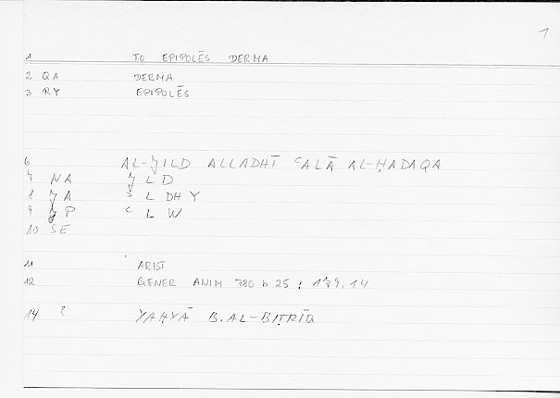 1
1 TO EPIPOLĒS DERMA
2 QA DERMA
3 RY EPIPOLĒS
6 AL-JILD ALLADHĪ ʿALĀ AL-ḤADAQA
7 NA J L D
8 JA L DH Y
9 JP ʿ L W
10 SE
11 ARIST
12 GENER ANIM 780 b 25 ; 179.14
14 ? YAḤYĀ B.AL-BIṬRĪQ